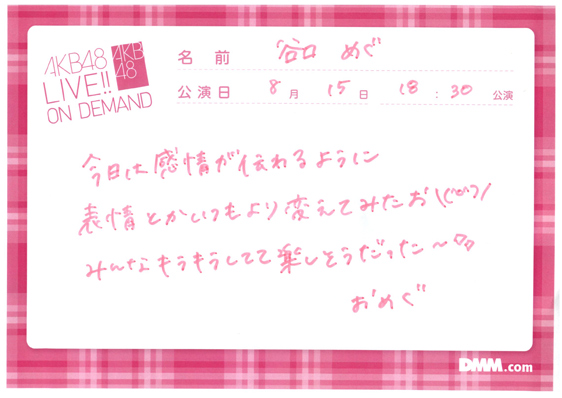 AKB48
LIVE!!
ON DEMAND
AKB
48
名前 谷口 めぐ
公演日 8月 15日 18:30 公演
今日は感情が伝わるように
表情とかいつもより変えてみたお
みんなもうもうしてて楽しそうだった〜
おめぐ
DMM.com